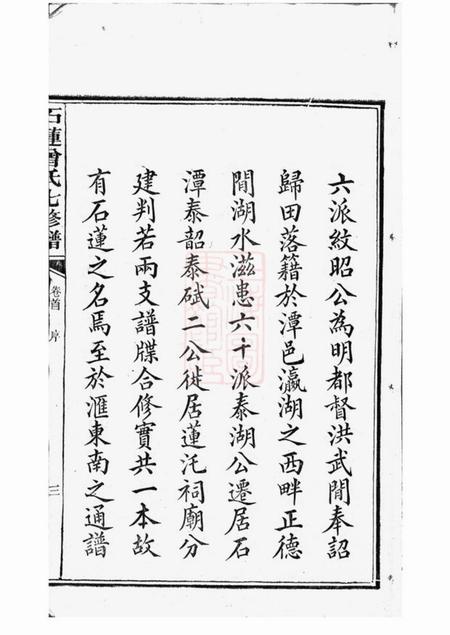 六派紋昭公為明都督洪武閒奉詔
歸田落籍於潭邑瀛湖之西畔正德
閒湖水滋患六十派泰湖公遷居石
潭泰韶泰斌二公徙居蓮沱祠廟分
建判若兩支譜牒合修實共一本故
有石蓮之名焉至於滙東南之通譜
石蓮曾氏七修譜
卷首 序
三